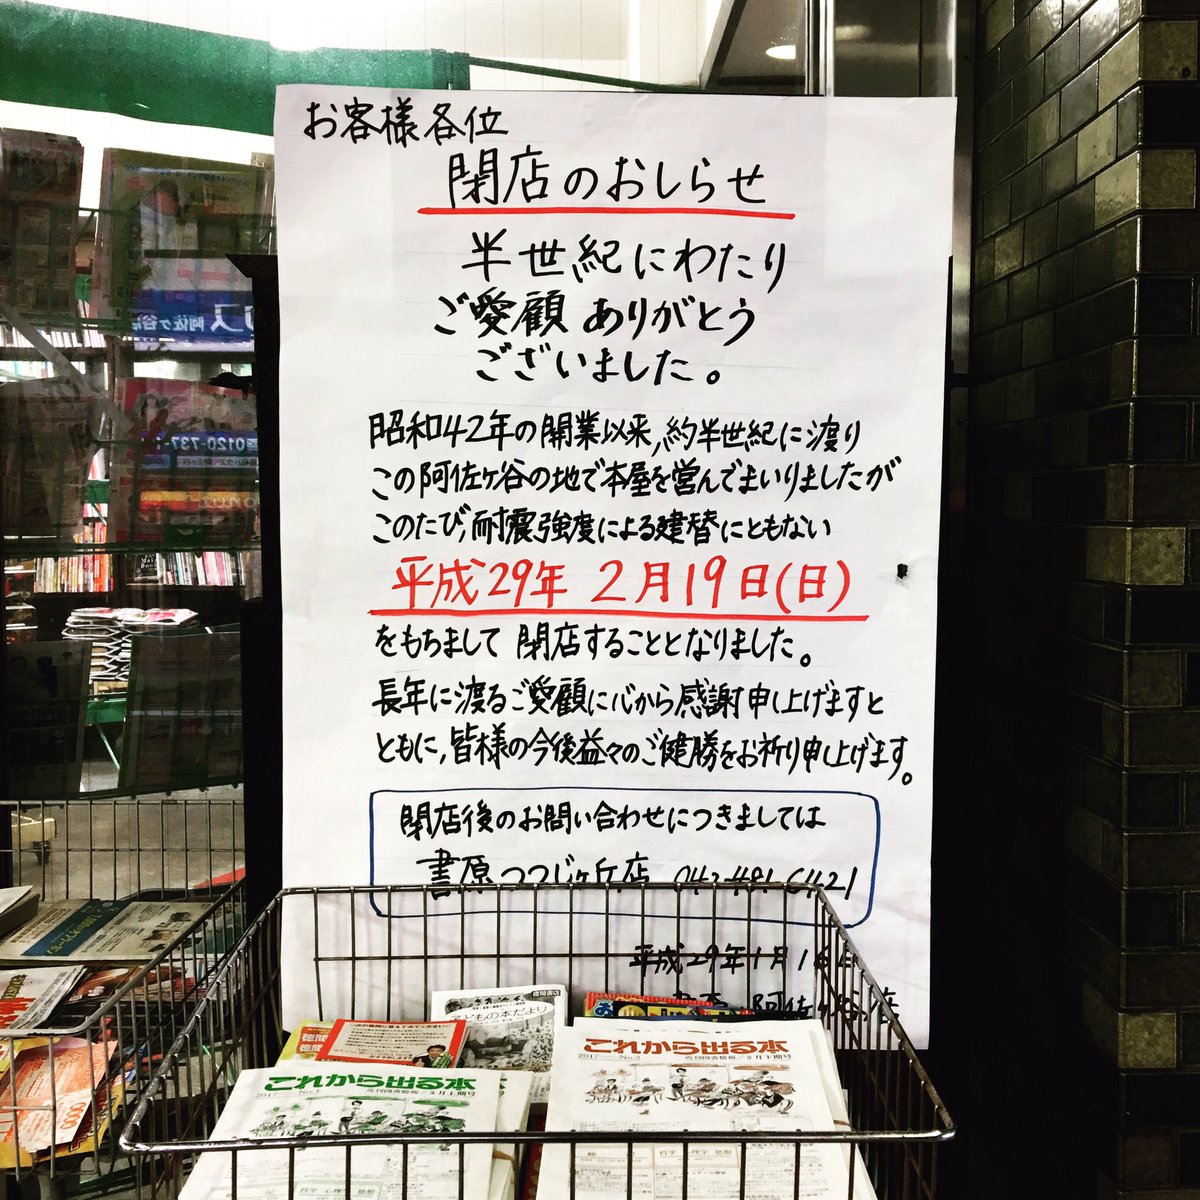 お客様各位
閉店のおしらせ
半世紀にわたり
ご愛顧ありがとう
ございました。
昭和42年の開業以来,約半世紀に渡り
この阿佐ヶ谷の地で本屋を営んでまいりましたが
このたび,耐震強度による建替にともない
平成29年 2月19日(日)
をもちまして 閉店することとなりました。
長年に渡るご愛顧に心から感謝申し上げますと
ともに,皆様の今後益々のご健勝をお祈り申し上げます。
閉店後のお問い合わせにつきましては
書原つつじヶ丘店 042-481-6421
平成29年1月
阿佐ヶ谷店
徳間書店
子どもの本だより
これから出る本
2017 No.3
近刊図書情報/2月上期号
これから出る本
2017 No.4
近刊図書情報/2月下期号
哲学 心理学 思想
哲学 心理学 思想
阿佐ヶ谷
0120-737-